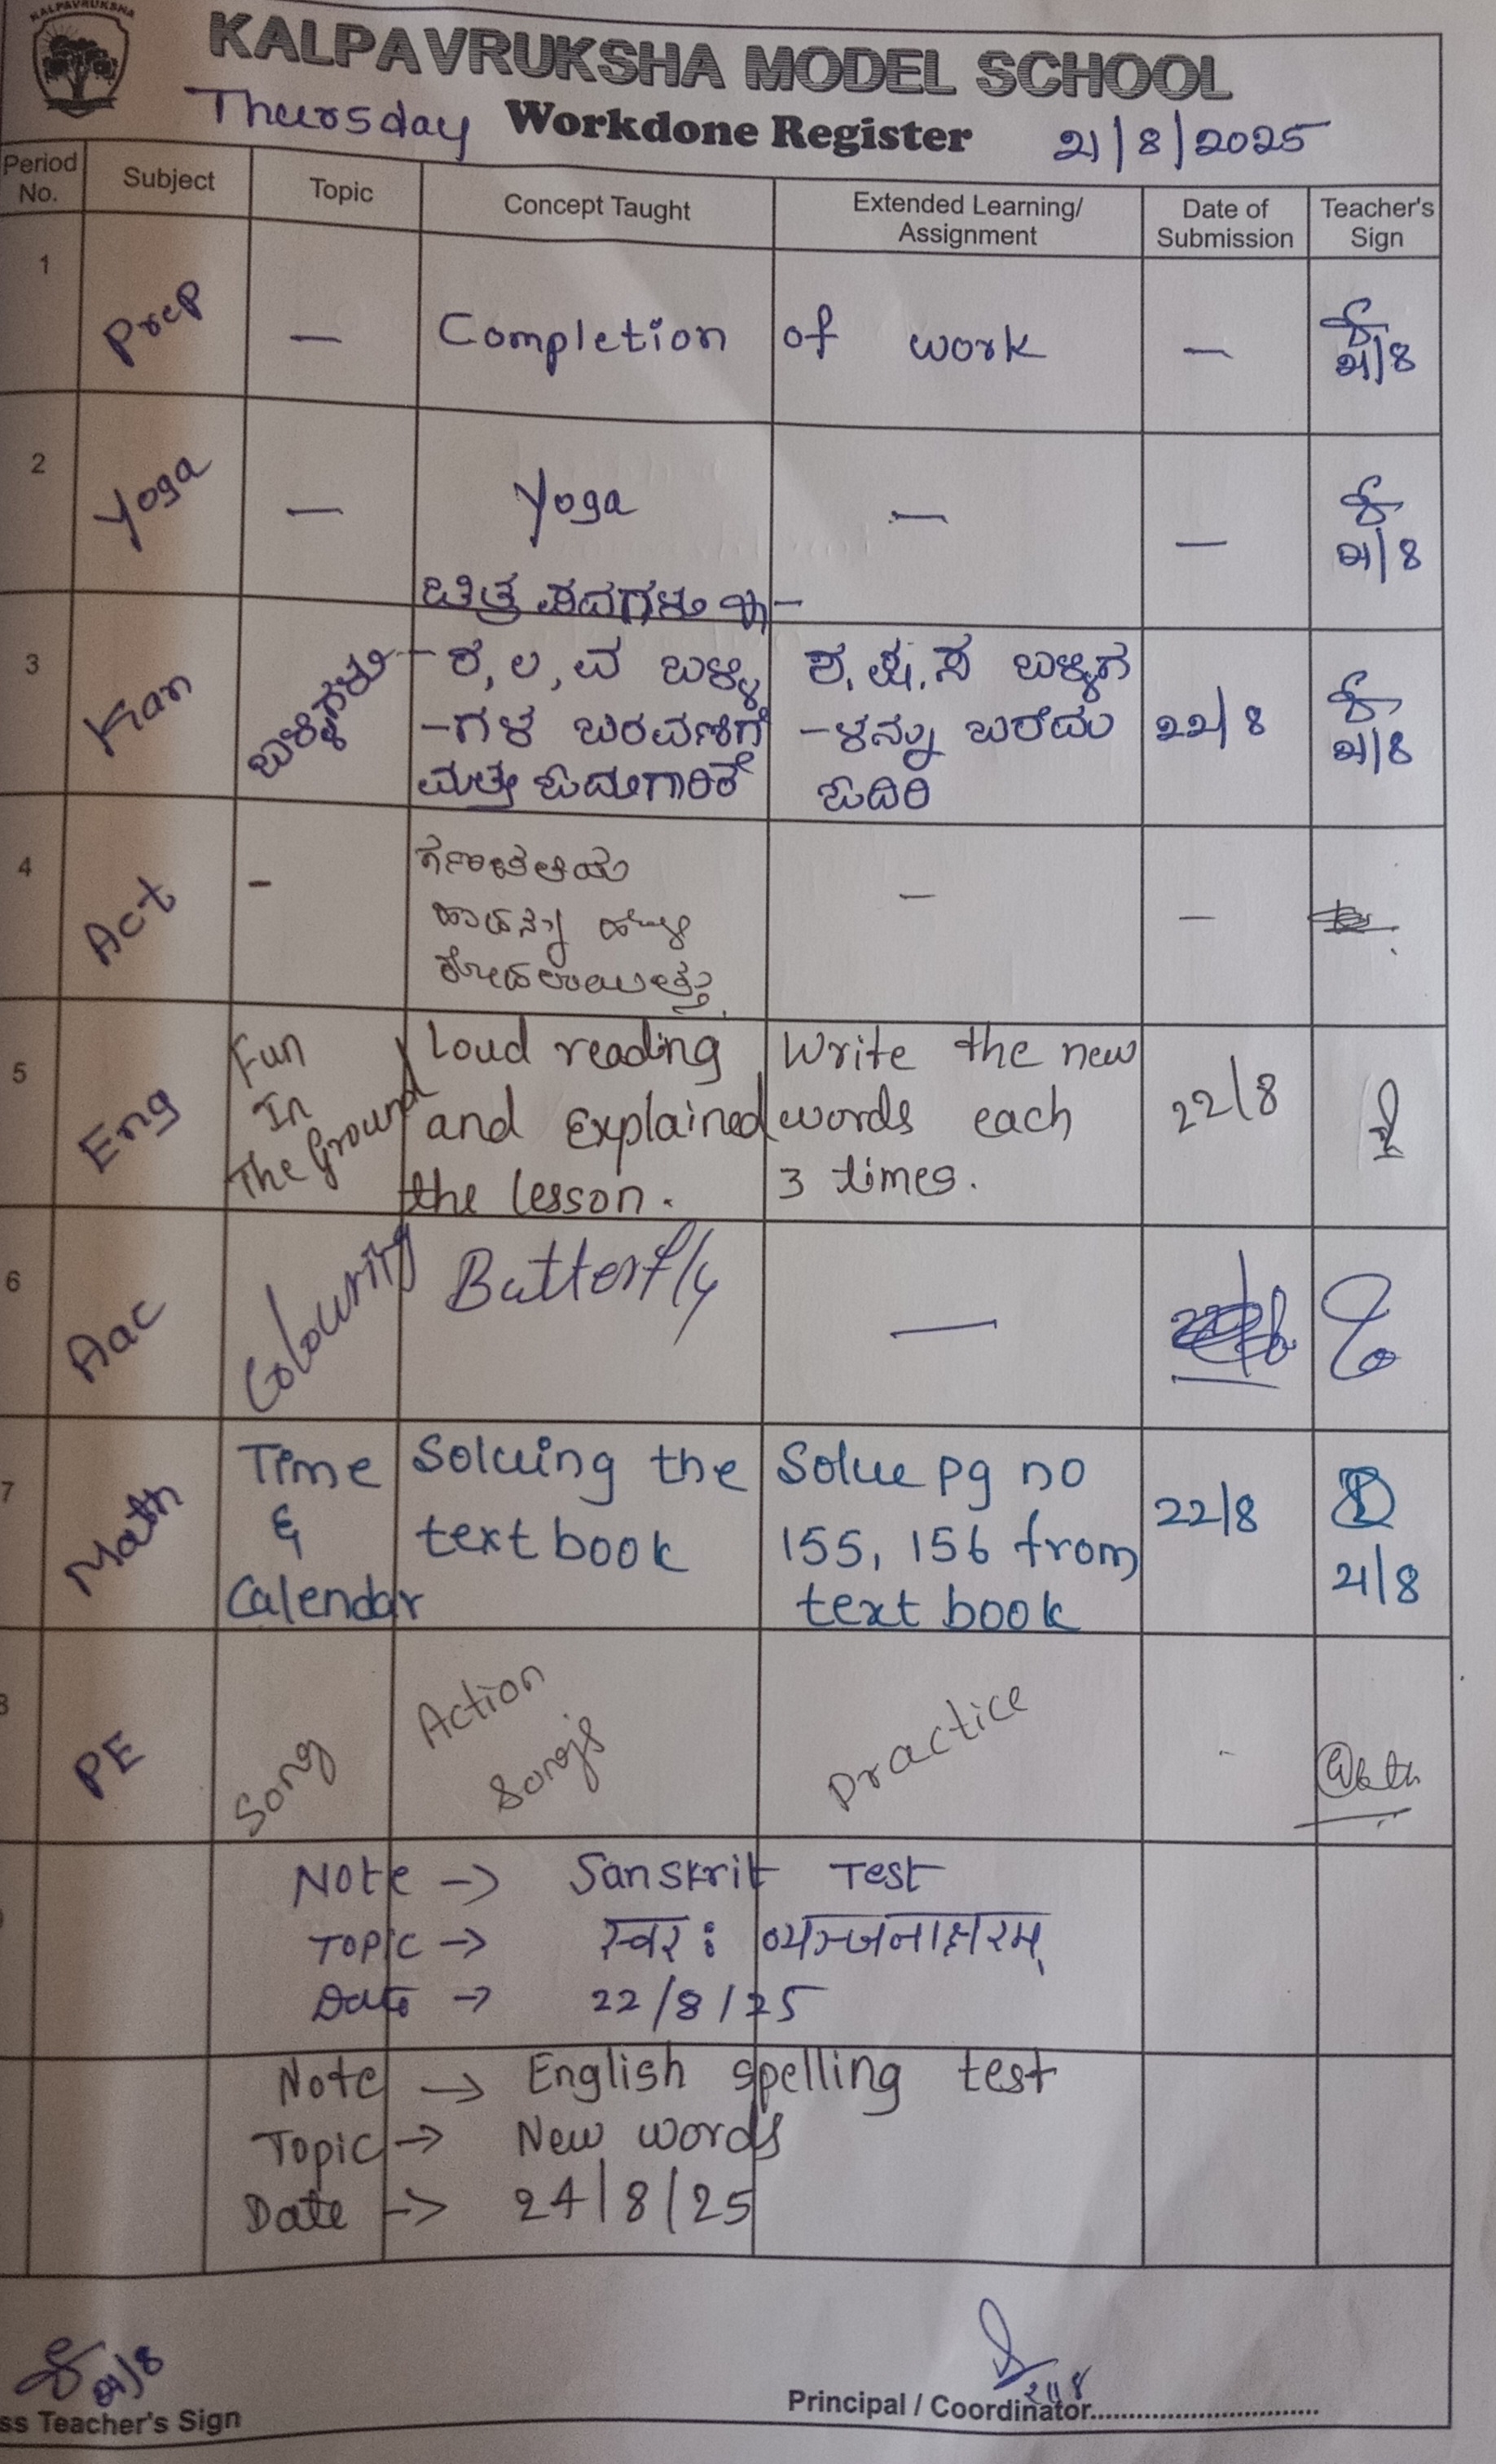 KALPAVRUKSHA
KALPAVRUKSHA MODEL SCHOOL
Thursday Workdone Register 21/8/2025
Period No. Subject Topic Concept Taught Extended Learning/ Assignment Date of Submission Teacher's Sign
1 Prep — Completion of work — 21/8
2 Yoga — Yoga — — 21/8
ಚಿತ್ರ ಪದಗಳು
3 Kan ಬಳ್ಳಿಗಳು - ಶ, ಲ, ವ ಬಳ್ಳಿ ಶ, ಷ, ಸ ಬಳ್ಳಿಗ
-ಗಳ ಬರವಣಿಗೆ -ಳನ್ನು ಬರೆದು 22/8 21/8
ಮತ್ತು ಓದುಗಾರಿಕೆ ಓದಿರಿ
4 Act - — —
5 Eng Fun Loud reading Write the new
In and explained words each 22/8
The Ground the lesson. 3 times.
6 Aac Colouring Butterfly —
7 Math Time Solving the Solve pg no 22/8
& text book 155, 156 from 21/8
Calendar text book
8 PE Song Action Songs Practice -
Note -> Sanskrit Test
Topic -> स्वर: व्यञ्जनाक्षरम्
Date -> 22/8/25
Note -> English spelling test
Topic -> New words
Date -> 24/8/25
21/8 21/8
ss Teacher's Sign Principal / Coordinator..............................